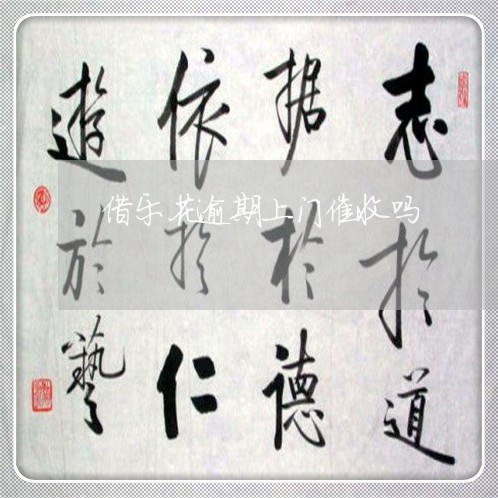 志於道
据於德
依於仁
遊於藝
借乐花逾期上门催收吗